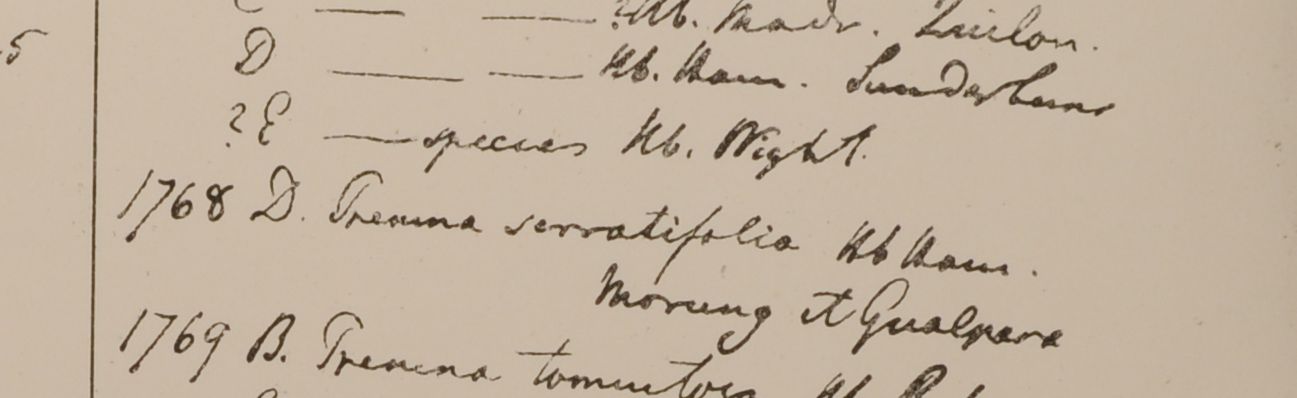 C — — ? Hb. Madr. Quilon.
5 D — — Hb. Ham. Sunderbuns
? E — species Hb. Wight.
1768 D. Premna serratifolia Hb Ham.
Morung et Gualpara
1769 B. Premna tomentosa Hb.